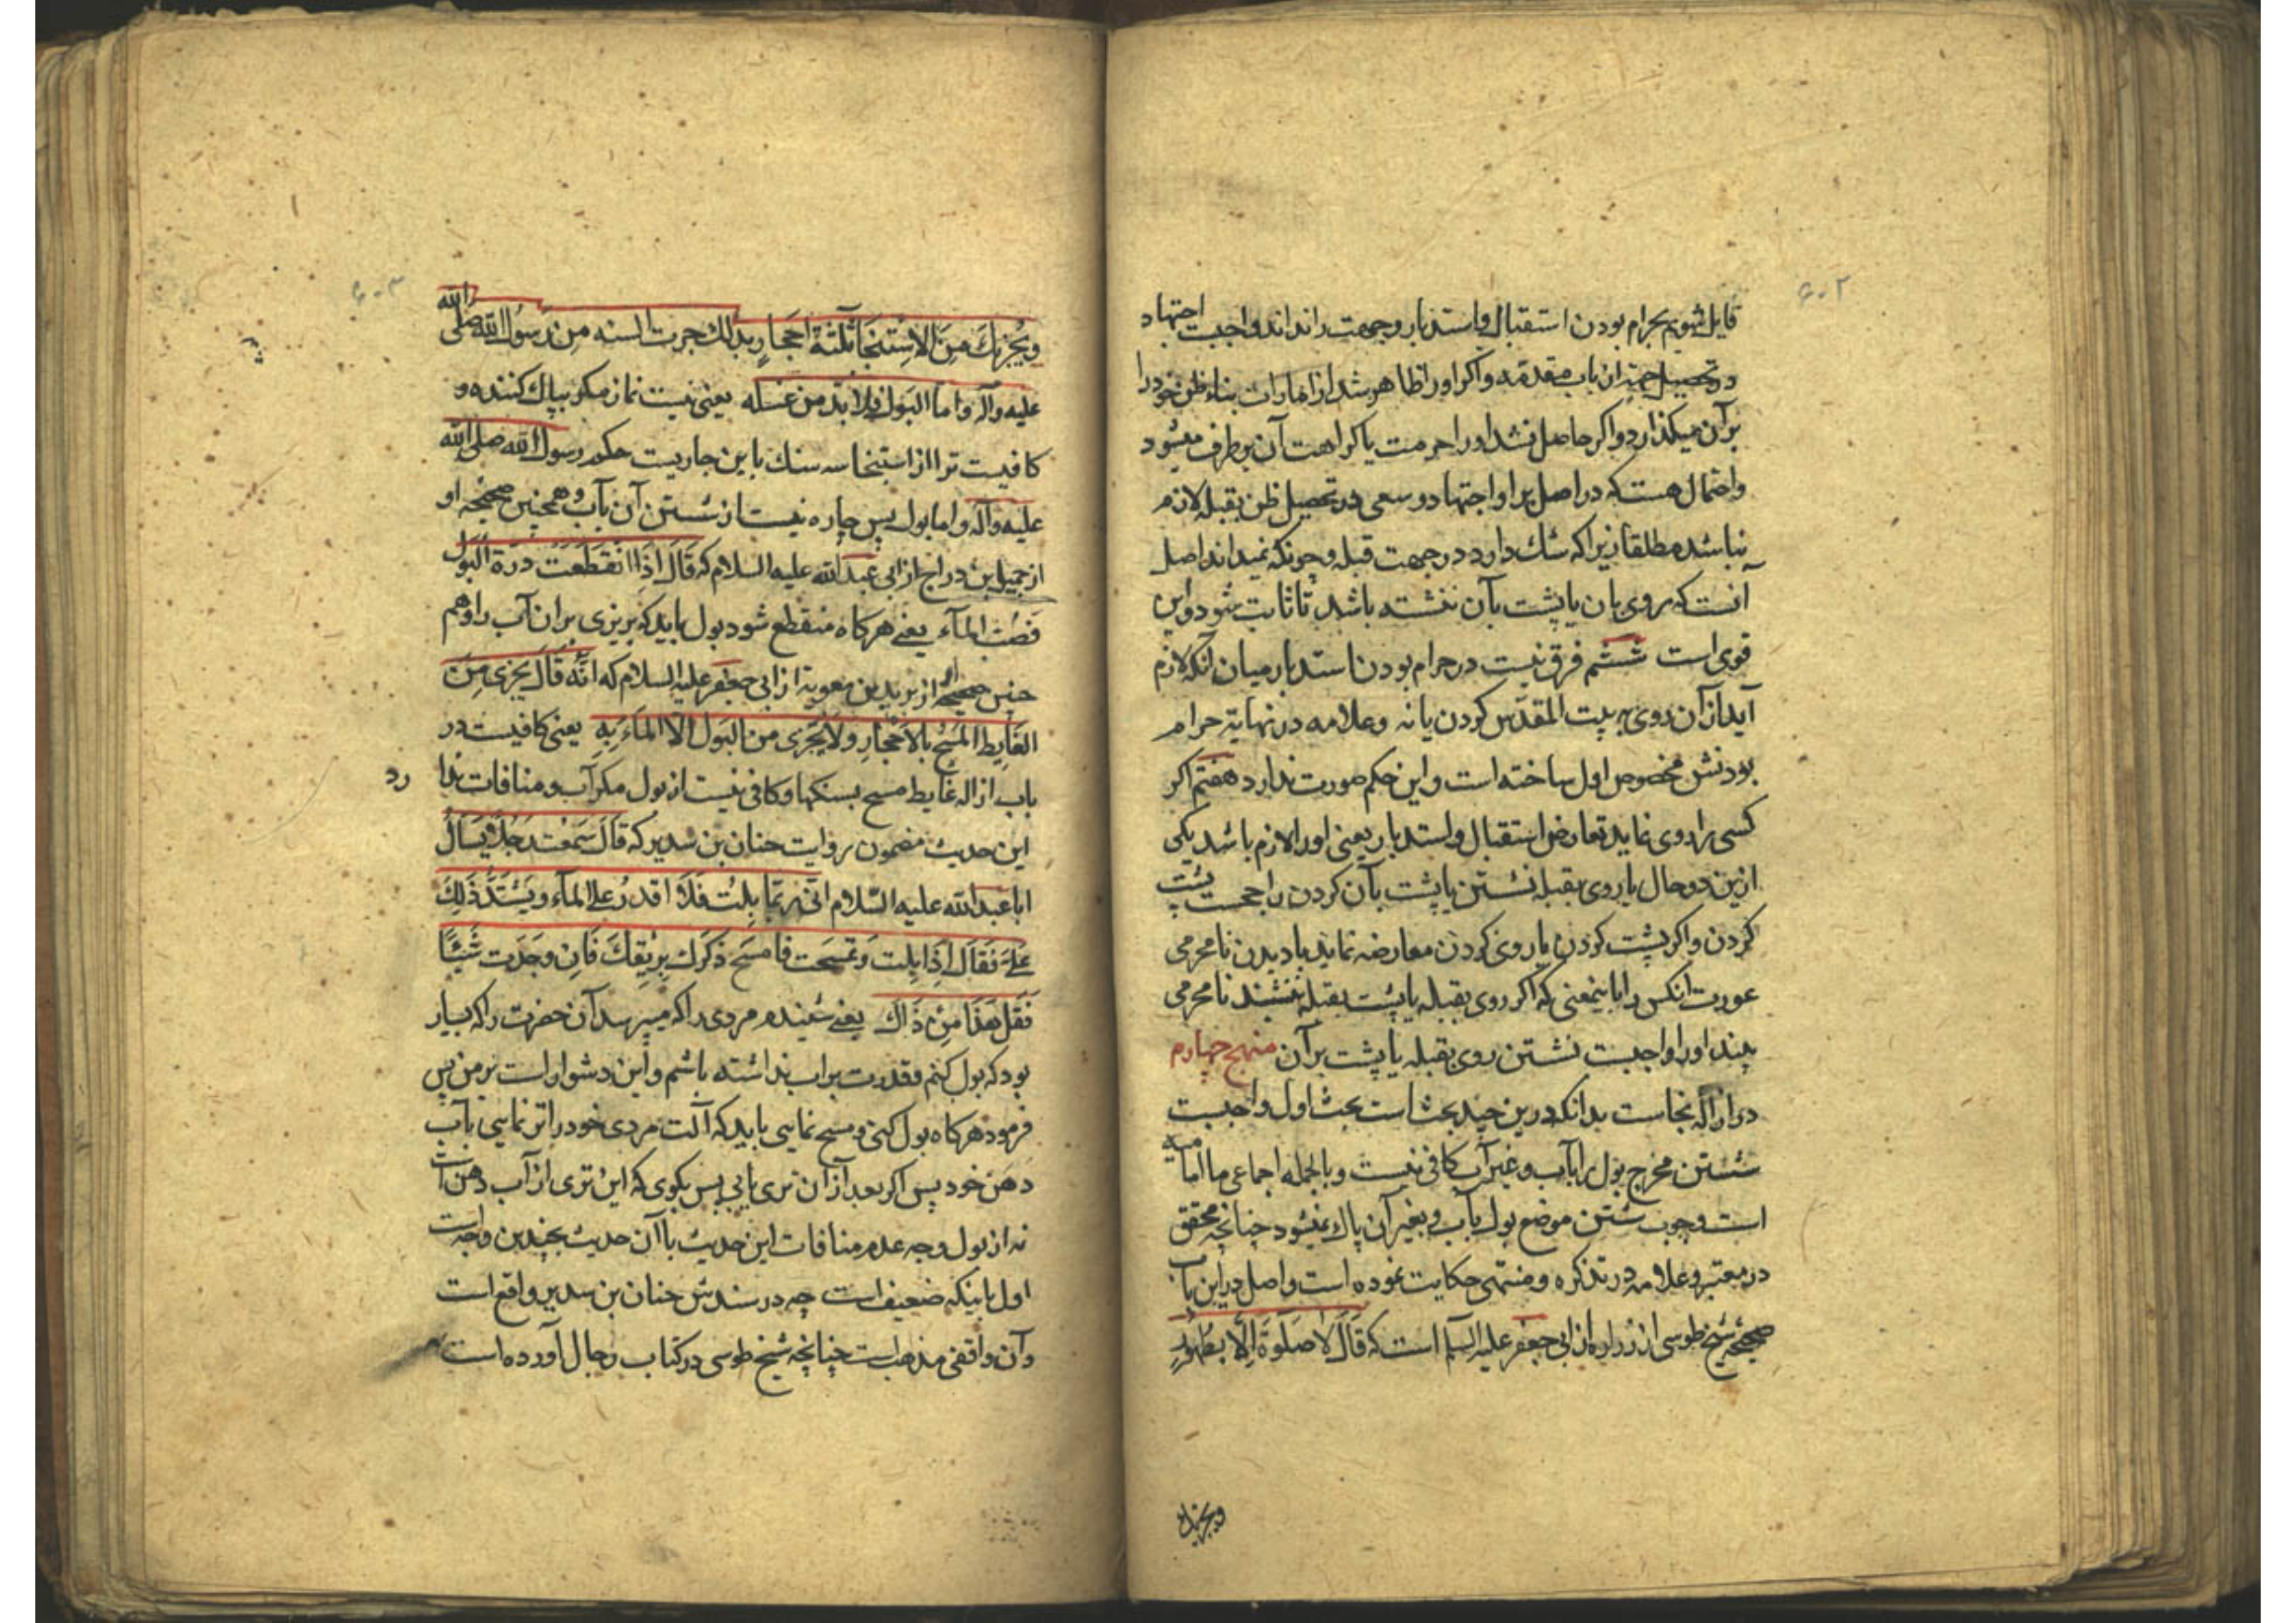 ۶۰۲
قایل شویم بحرام بودن استقبال واستدبار وجهت را نداند واجبست اجتهاد
در تحصیل جهة از باب مقدمه واکر اورا ظاهر شد از امارات بناء ظن خود را
برآن میکذارد واکر حاصل نشد اورا حرمت یا کراهت آن برطرف میشود
واحتمال هست که در اصل براو اجتهاد و سعی در تحصیل ظن بقبله لازم
نباشد مطلقا زیرا که شك دارد در جهت قبله وچونکه نمیداند اصل
آنست که روی بان یا پشت بآن ننشسته باشد تا ثابت شود واین
قوی است ششم فرق نیست در حرام بودن استدبار میان آنکه لازم
آید از آن روی به بیت المقدس کردن یا نه وعلامه در نهایة حرام
بودنش مخصوص اول ساخته است واین حکم صورت ندارد هفتم اکر
کسی را روی نماید تعارض استقبال واستدبار یعنی اورا لازم باشد یکی
ازین دو حال یا روی بقبله نشستن یا پشت بآن کردن راجحست پشت
کردن واکر پشت کردن یا روی کردن معارضه نماید با دیدن نامحرمی
عورت انکس را باینمعنی که اکر روی بقبله یا پشت بقبله ننشیند نامحرمی
بیند اورا واجبست نشستن روی بقبله یا پشت برآن منهج چهارم
در ازاله نجاست بدانکه درین چند بحث است بحث اول واجبست
شستن مخرج بول را بآب وغیر آب کافی نیست وبالجمله اجماعی ما امامیه
است وجوب شستن موضع بول بآب وبغیر آن پاك نمیشود چنانچه محقق
در معتبر وعلامه در تذکره ومنتهی حکایت نموده است واصل در این باب
صحیحه شیخ طوسی از زراره از ابی جعفر علیه السلم است که قَالَ لَا صَلَوةَ اِلَّا بِطَهُورٍ
ویجزیك
۶۰۳
ویُجْزِیكَ مِنَ الاِسْتِنْجَا ثَلثَةُ اَحْجَارٍ بذلك جرت السنه مِن رَسولُ الله صلی الله
علیه وآله واما البَول فلا بُدّ من غسله یعنی نیست نماز مکر بپاك کننده و
کافیست ترا از استنجا سه سنك باین جاریست حکم رسول الله صلی الله
علیه وآله واما بول پس چاره نیست از شستن آن بآب وهمچنین صحیحه او
از جمیل بن دراج از ابی عبد الله علیه السلام که قَالَ اِذَا انْقَطَعَتْ دَرَّة البَول
فَصُبّ المآء یعنی هرکاه منقطع شود بول باید که بریزی بران آب را وهم
چنین صحیحه از برید بن معویه از ابی جعفر علیه السلام که انَّه قَالَ یجزی مِنَ
الغَایط المَسْحُ بالاَحْجَارِ ولا یَجْزی من البَول اِلّا المَاءَ بِهِ یعنی کافیست در
باب ازاله غایط مسح بسنکها وکافی نیست از بول مکر آب ومنافات ندا
رد
این حدیث مضمون روایت حنان بن سدیر که قَالَ سَمِعْت رَجُلاً یَسَالُ
ابا عبد الله علیه السّلام انّی رُبّما بلتُ فَلَا اَقدرُ علی المآء ویَشْتَدُّ ذَلِكَ
عَلَیَّ فَقَال اِذَا بِلت وَتمسحت فامسَح ذَکَرَك بِرِیقِكَ فَاِن وجَدت شَیْئًا
فَقُل هَذَا مِنْ ذَاكَ یعنی شنیدم مردی را که میپرسد آن حضرت را که بسیار
بود که بول کنم وقدرت براب نداشته باشم واین دشوار است بر من پس
فرمود هرکاه بول کنی ومسح نمایی باید که آلت مردی خود را تر نمایی بآب
دهن خود پس اکر بعد از ان تری یابی پس بکوی که این تری از آب دهن است
نه از بول وجه عدم منافات این حدیث با آن حدیث بچندین وجه است
اول باینکه ضعیف است چه در سندش حنان بن سدیر واقع است
وآن واقفی مذهب است چنانچه شیخ طوسی در کتاب رجال آورده است